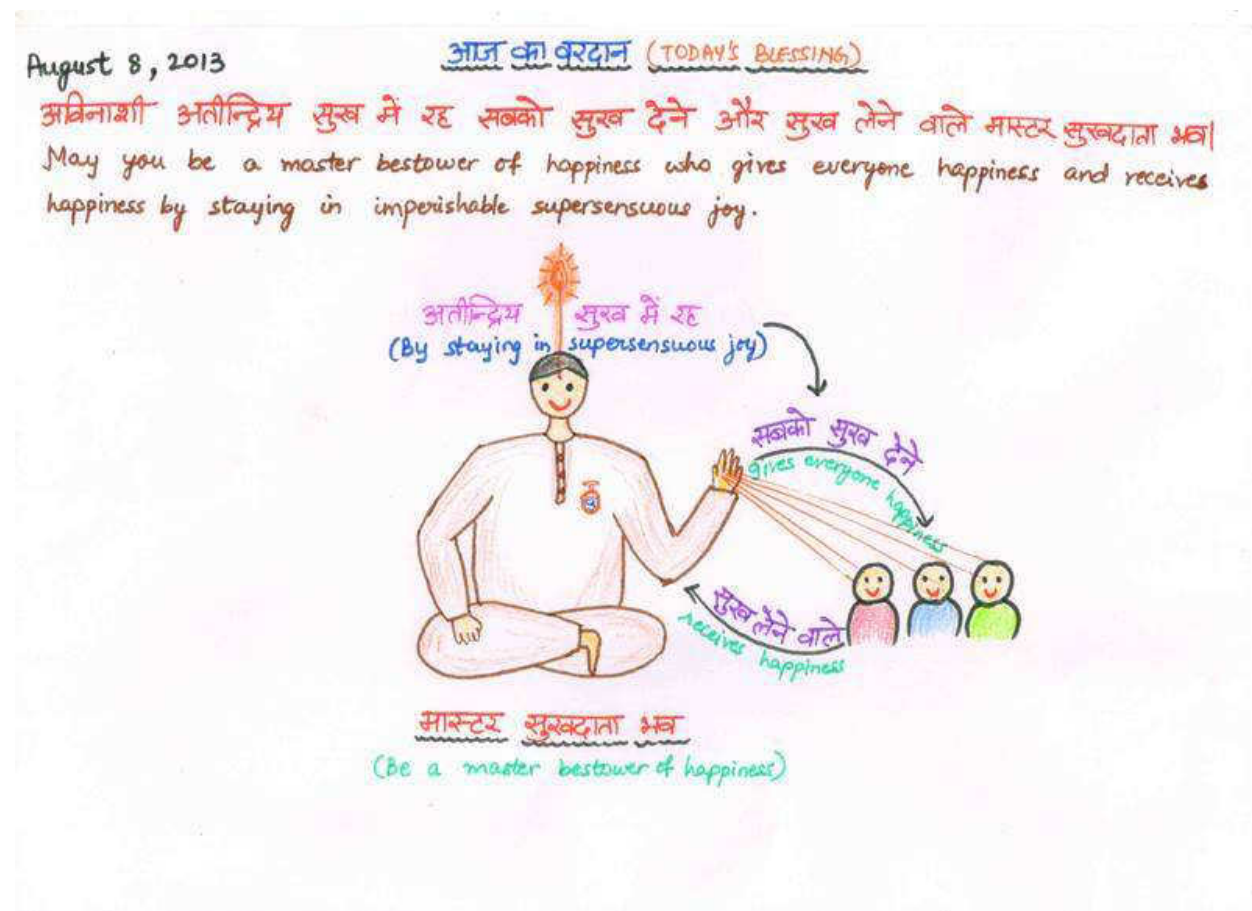 August 8, 2013
आज का वरदान (TODAY'S BLESSING)
अविनाशी अतीन्द्रिय सुख में रह सबको सुख देने और सुख लेने वाले मास्टर सुखदाता भव|
May you be a master bestower of happiness who gives everyone happiness and receives
happiness by staying in imperishable supersensuous joy.
अतीन्द्रिय सुख में रह
(By staying in supersensuous joy)
सबको सुख देने
gives everyone happiness
सुख लेने वाले
receives happiness
मास्टर सुखदाता भव
(Be a master bestower of happiness)